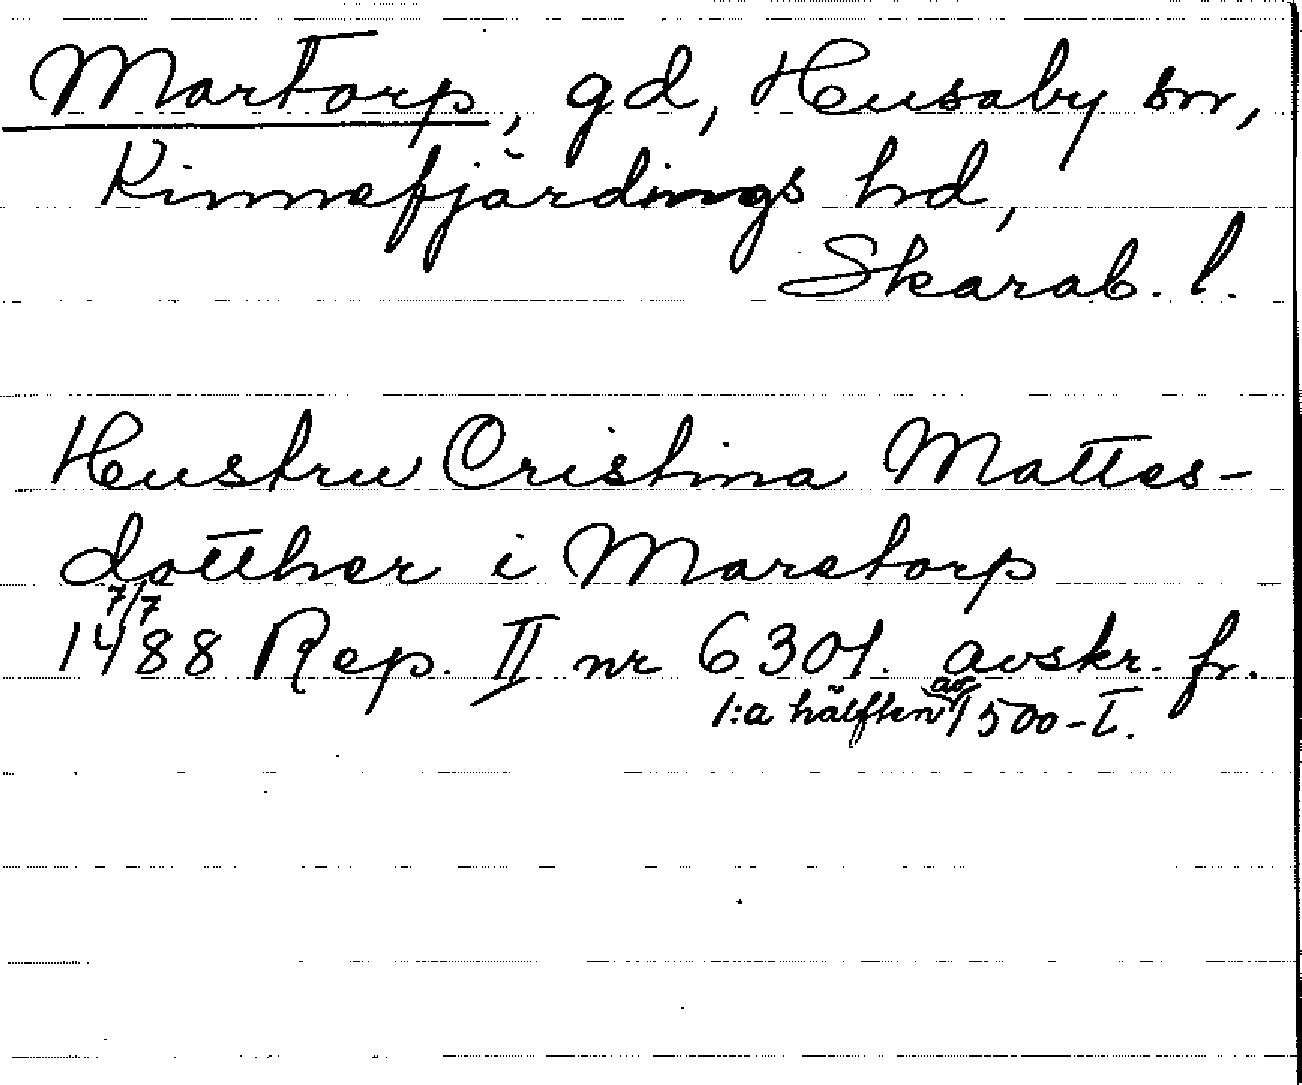 Martorp, gd, Husaby sn,
Kinnefjärdings hd,
Skarab. l.
Hustru Cristina Mattes-
dotther i Maretorp
7/7
1488 Rep. II nr 6301. avskr. fr.
1:a hälften av 1500-t.